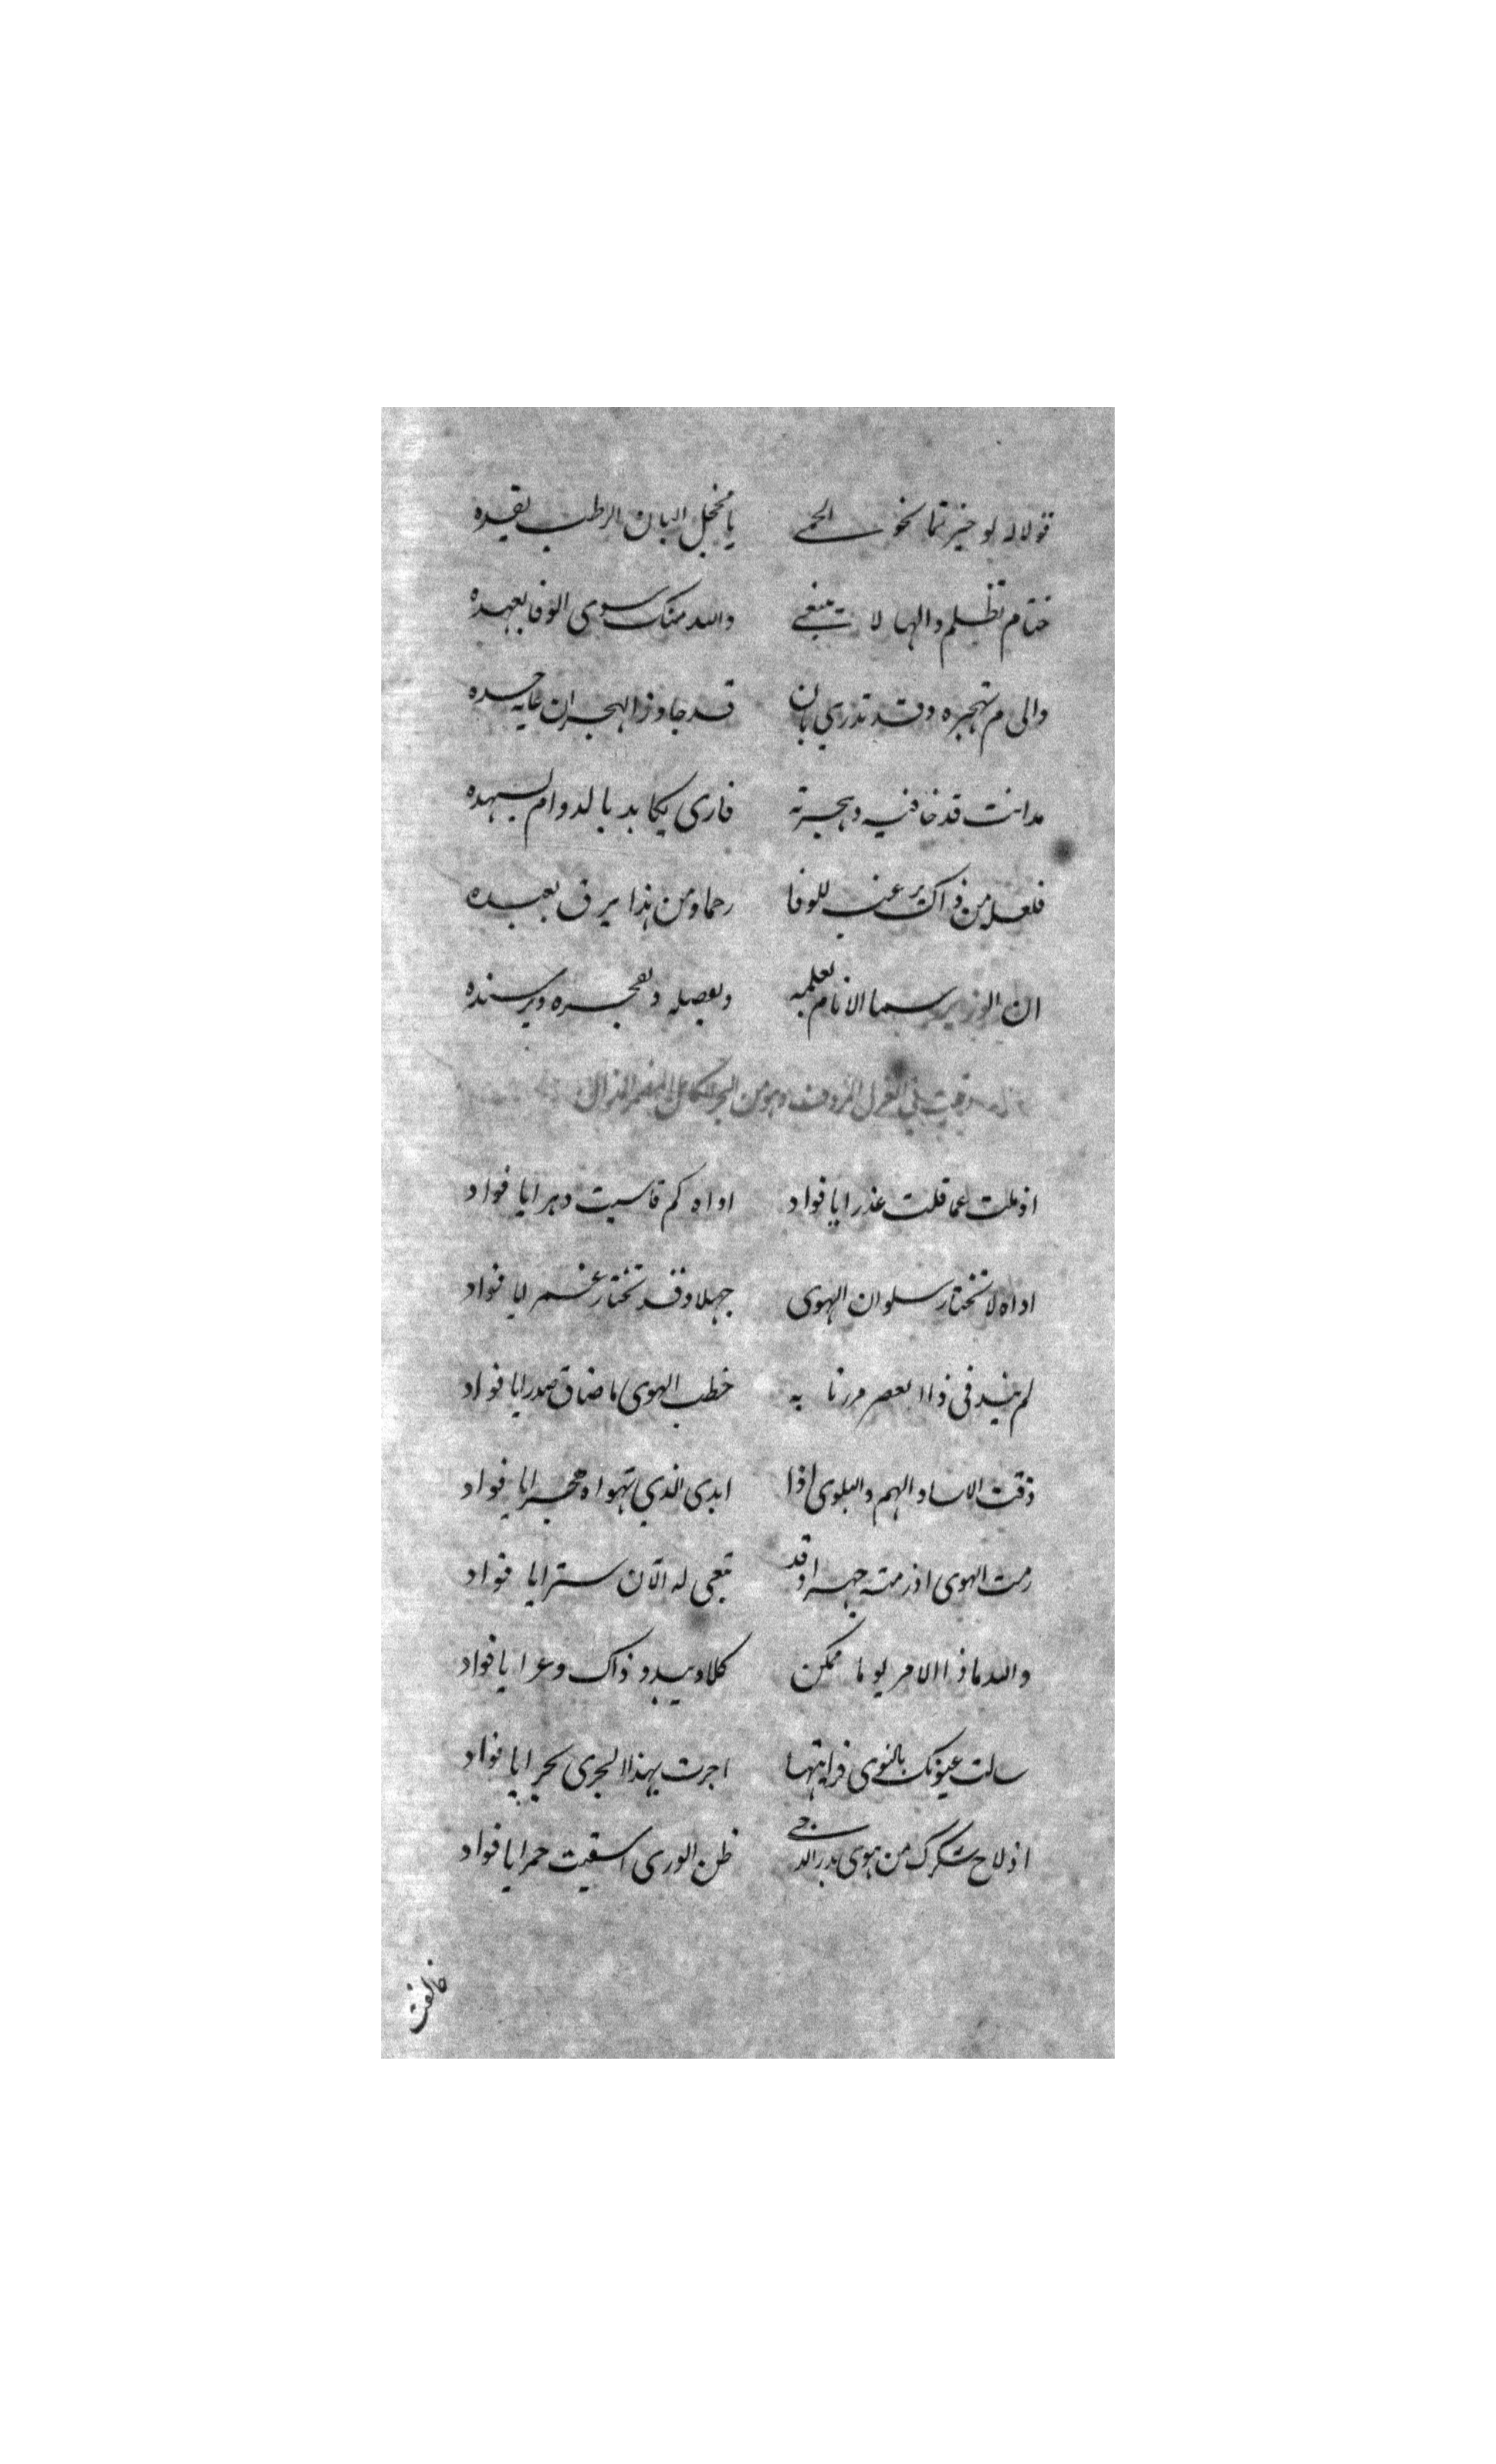 قولا له لو جزتما نحو الحمى يا مخجل البان الرطيب بقده
ختام تظلم والها لا تبتغي والله منك سوى الوفا بعهده
والى م تهجره وقد تدري بان قد جاوز الهجران غاية حده
مد انت قد خافيه وهجرته فارى يكابد بالدوام لسهده
فلعل من ذاك يرغب للوفا رحما ومن هذا يرق بعبده
ان الوزير سما الانام بعلمه وبفصله وبفخره وبرسنده
الغزل المردوف وهو من البحر الكامل
اذهلت عما قلت عذرا يا فواد اواه كم قاسيت دهرا يا فواد
اواه لا تختار سلوان الهوى جهلا وقد تختار غـمرا يا فواد
لم في ذا العصر مررنا به خطب الهوى ما ضاق صدرا يا فواد
ذقت الاسا والهم والبلوى اذا ابدى الذي تهواه هجرا يا فواد
رمت الهوى اذ رمته جهرا وقد تبغي له الآن سترا يا فواد
والله ما ذا الامر يوما ممكن كلا ويبدو ذاك وعرا يا فواد
سالت عيونك بالنوى فرايتها اجرت بهذا الجرى بحرا يا فواد
اذ لاح سكرك من هوى بدر الدجى ظن الورى اسقيت خمرا يا فواد
خالفت